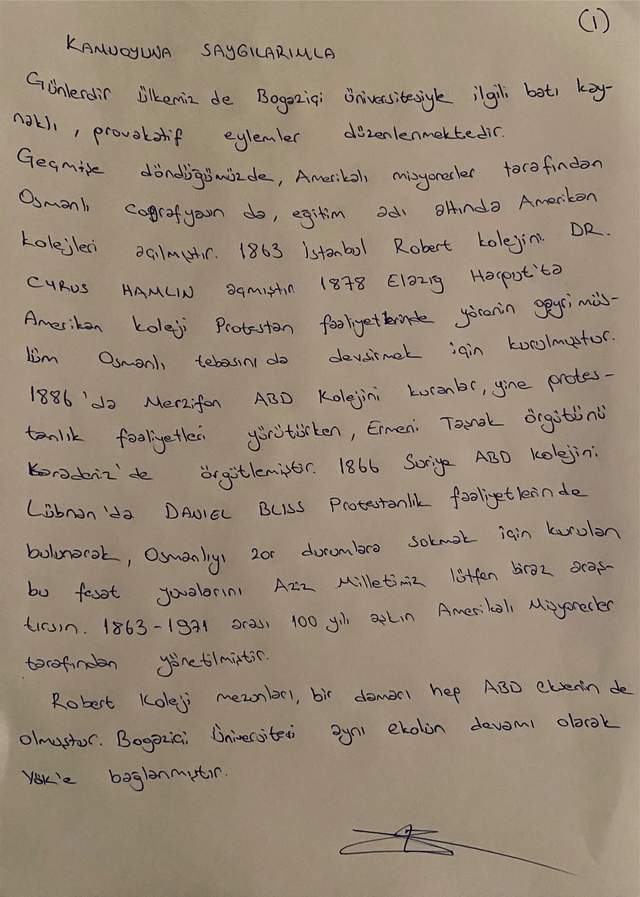 (1)
KAMUOYUNA SAYGILARIMLA
Günlerdir Ülkemiz de Bogaziçi üniversitesiyle ilgili batı kay-
naklı, provakatif eylemler düzenlenmektedir.
Geçmişe döndüğümüzde, Amerikalı misyonerler tarafından
Osmanlı Cografyasın da, egitim adı altında Amerikan
kolejleri açılmıştır. 1863 İstanbul Robert kolejini DR.
CYRUS HAMLIN açmıştır 1878 Elazıg Harput'ta
Amerikan koleji Protestan faaliyetlerinde yörenin gayri müs-
lüm Osmanlı tebasını da devşirmek için kurulmuştur.
1886'da Merzifon ABD Kolejini kuranlar, yine protes-
tanlık faaliyetleri yürütürken, Ermeni Taşnak örgütünü
Karadeniz'de örgütlemiştir. 1866 Suriye ABD kolejini
Lübnan'da DANIEL BLISS Protestanlık faaliyetlerin de
bulunarak, Osmanlıyı zor durumlara sokmak için kurulan
bu fesat yuvalarını Aziz Milletimiz lütfen biraz araş-
tırsın. 1863-1971 arası 100 yılı aşkın Amerikalı Misyonerler
tarafından yönetilmiştir.
Robert Koleji mezonları, bir damarı hep ABD eksenin de
olmuştur. Bogaziçi Üniversitesi aynı ekolün devamı olarak
YÖK'e baglanmıştır.